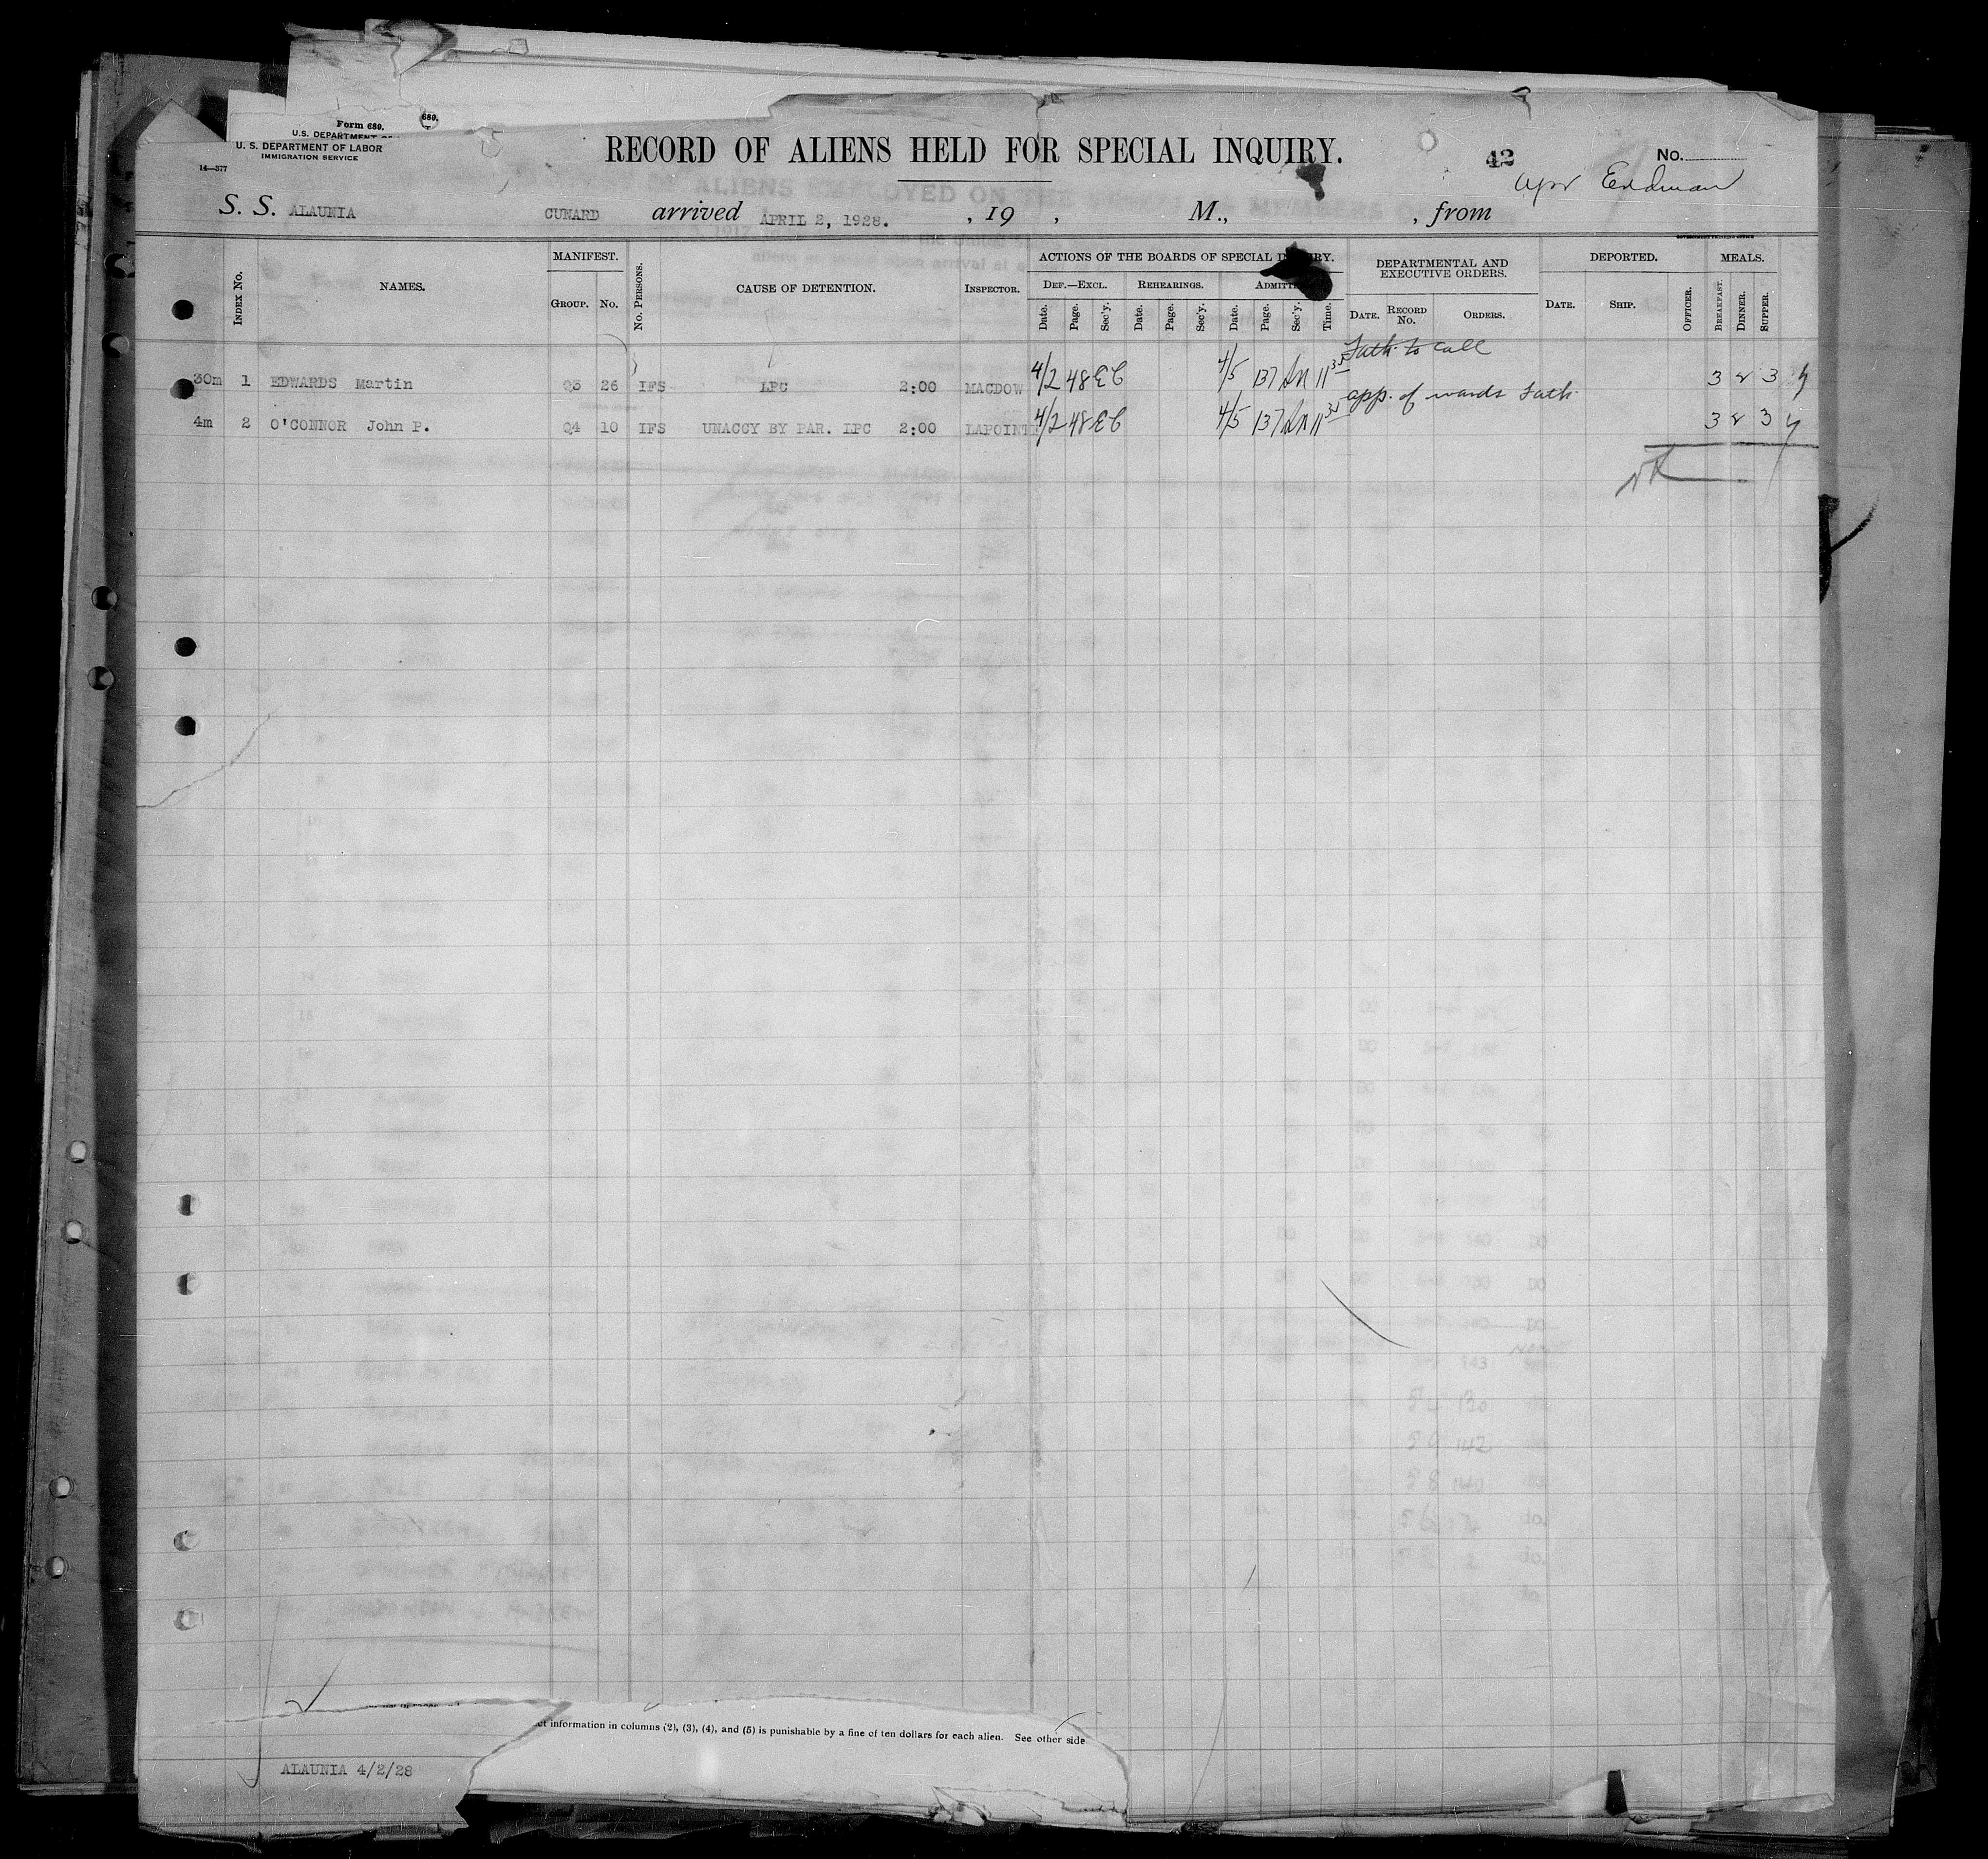 Form 680.
680.
U. S. DEPARTMENT OF
U. S. DEPARTMENT OF LABOR
IMMIGRATION SERVICE
14—377
RECORD OF ALIENS HELD FOR SPECIAL INQUIRY.
42
No.
Erdman
S. S. ALAUNIA CUNARD arrived APRIL 2, 1928. , 19 , M., , from
GOVERNMENT PRINTING OFFICE
Index No. NAMES. MANIFEST. Group. No. No. Persons. CAUSE OF DETENTION. Inspector.
ACTIONS OF THE BOARDS OF SPECIAL INQUIRY. Def.—Excl. Date. Page. Sec'y. Rehearings. Date. Page. Sec'y. Admitted. Date. Page. Sec'y. Time.
DEPARTMENTAL AND EXECUTIVE ORDERS. Date. Record No. Orders. DEPORTED. Date. Ship. Officer. MEALS. Breakfast. Dinner. Supper.
Fath. to call
30m 1 EDWARDS Martin Q3 26 IFS LPC 2:00 MACDOW 4/2 48 EC 4/5 137 11 35 3 2 3
app. of wards Fath.
4m 2 O'CONNOR John P. Q4 10 IFS UNACCY BY PAR. LPC 2:00 LAPOINT 4/2 48 EC 4/5 137 11 35 3 2 3
information in columns (2), (3), (4), and (5) is punishable by a fine of ten dollars for each alien. See other side
ALAUNIA 4/2/28